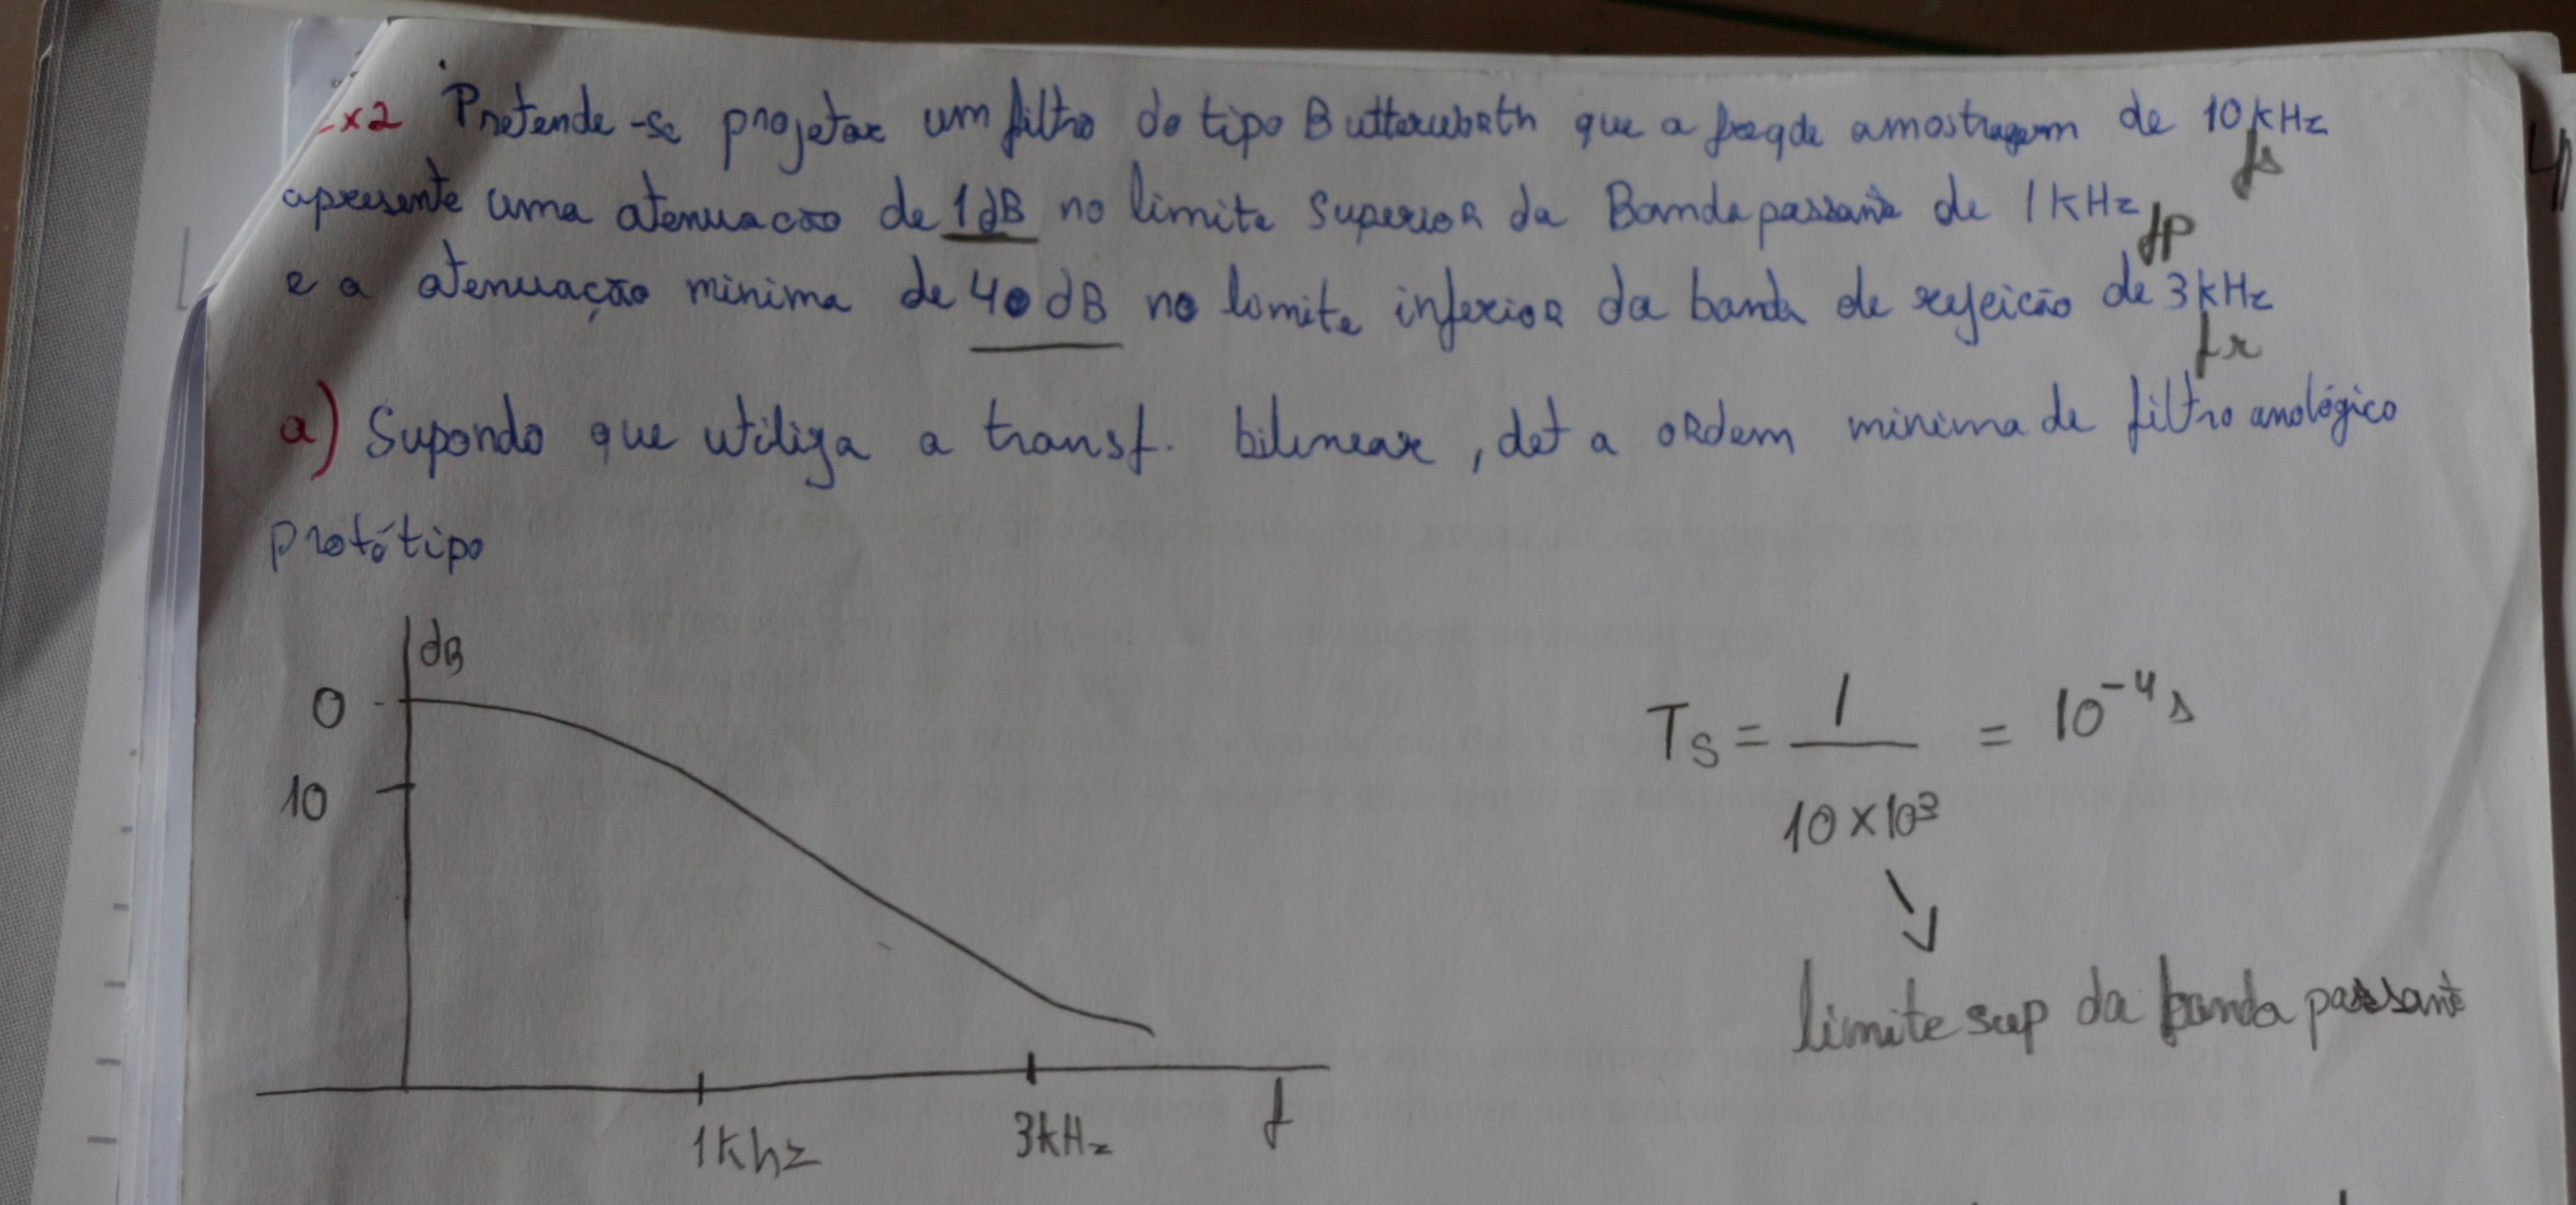 Ex2 Pretende-se projetar um filtro do tipo Butterwborth que a freqde amostragem de 10kHz
fs
apresente uma atenuacão de 1dB no limite superior da Banda passante de 1KHz
fp
e a atenuação minima de 40 dB no limite inferior da banda de rejeicão de 3kHz
fr
a) Supondo que utiliza a transf. bilinear, det a ordem minima de filtro analógico
protótipo
dB
0
10
1Khz
3kHz
f
Ts = 1 / 10×10³ = 10⁻⁴ s
↘
limite sup da banda passante